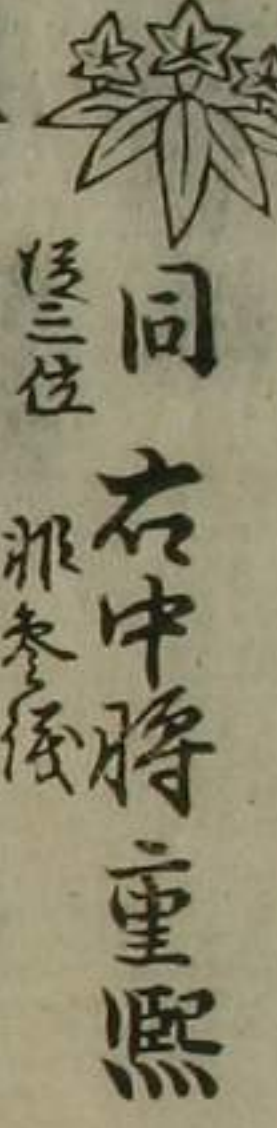 同 右中将 重熙
従三位 非参議